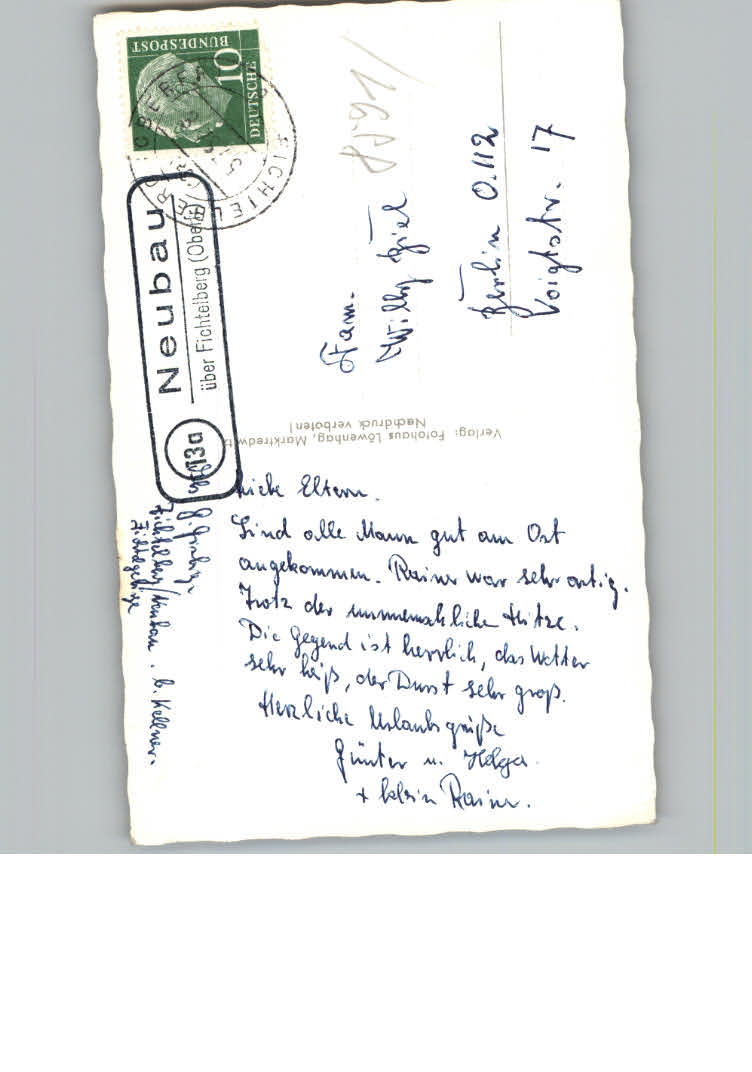 DEUTSCHE
BUNDESPOST
10
FICHTELBERG
13a
Neubau
über Fichtelberg
Fam.
Willy
Berlin O.112
Voigtstr. 17
Verlag: Fotohaus Löwenhag, Marktredwitz
Nachdruck verboten!
Fichtelberg/Neubau. b. Kellner.
Fichtelgebirge
Liebe Eltern.
Sind alle Mann gut am Ort
angekommen. Rainer war sehr artig.
Trotz der unmenschlichen Hitze.
Die Gegend ist herrlich, das Wetter
sehr heiß, der Durst sehr groß.
Herzliche Urlaubsgrüße
Günter u. Helga.
+ klein Rainer.